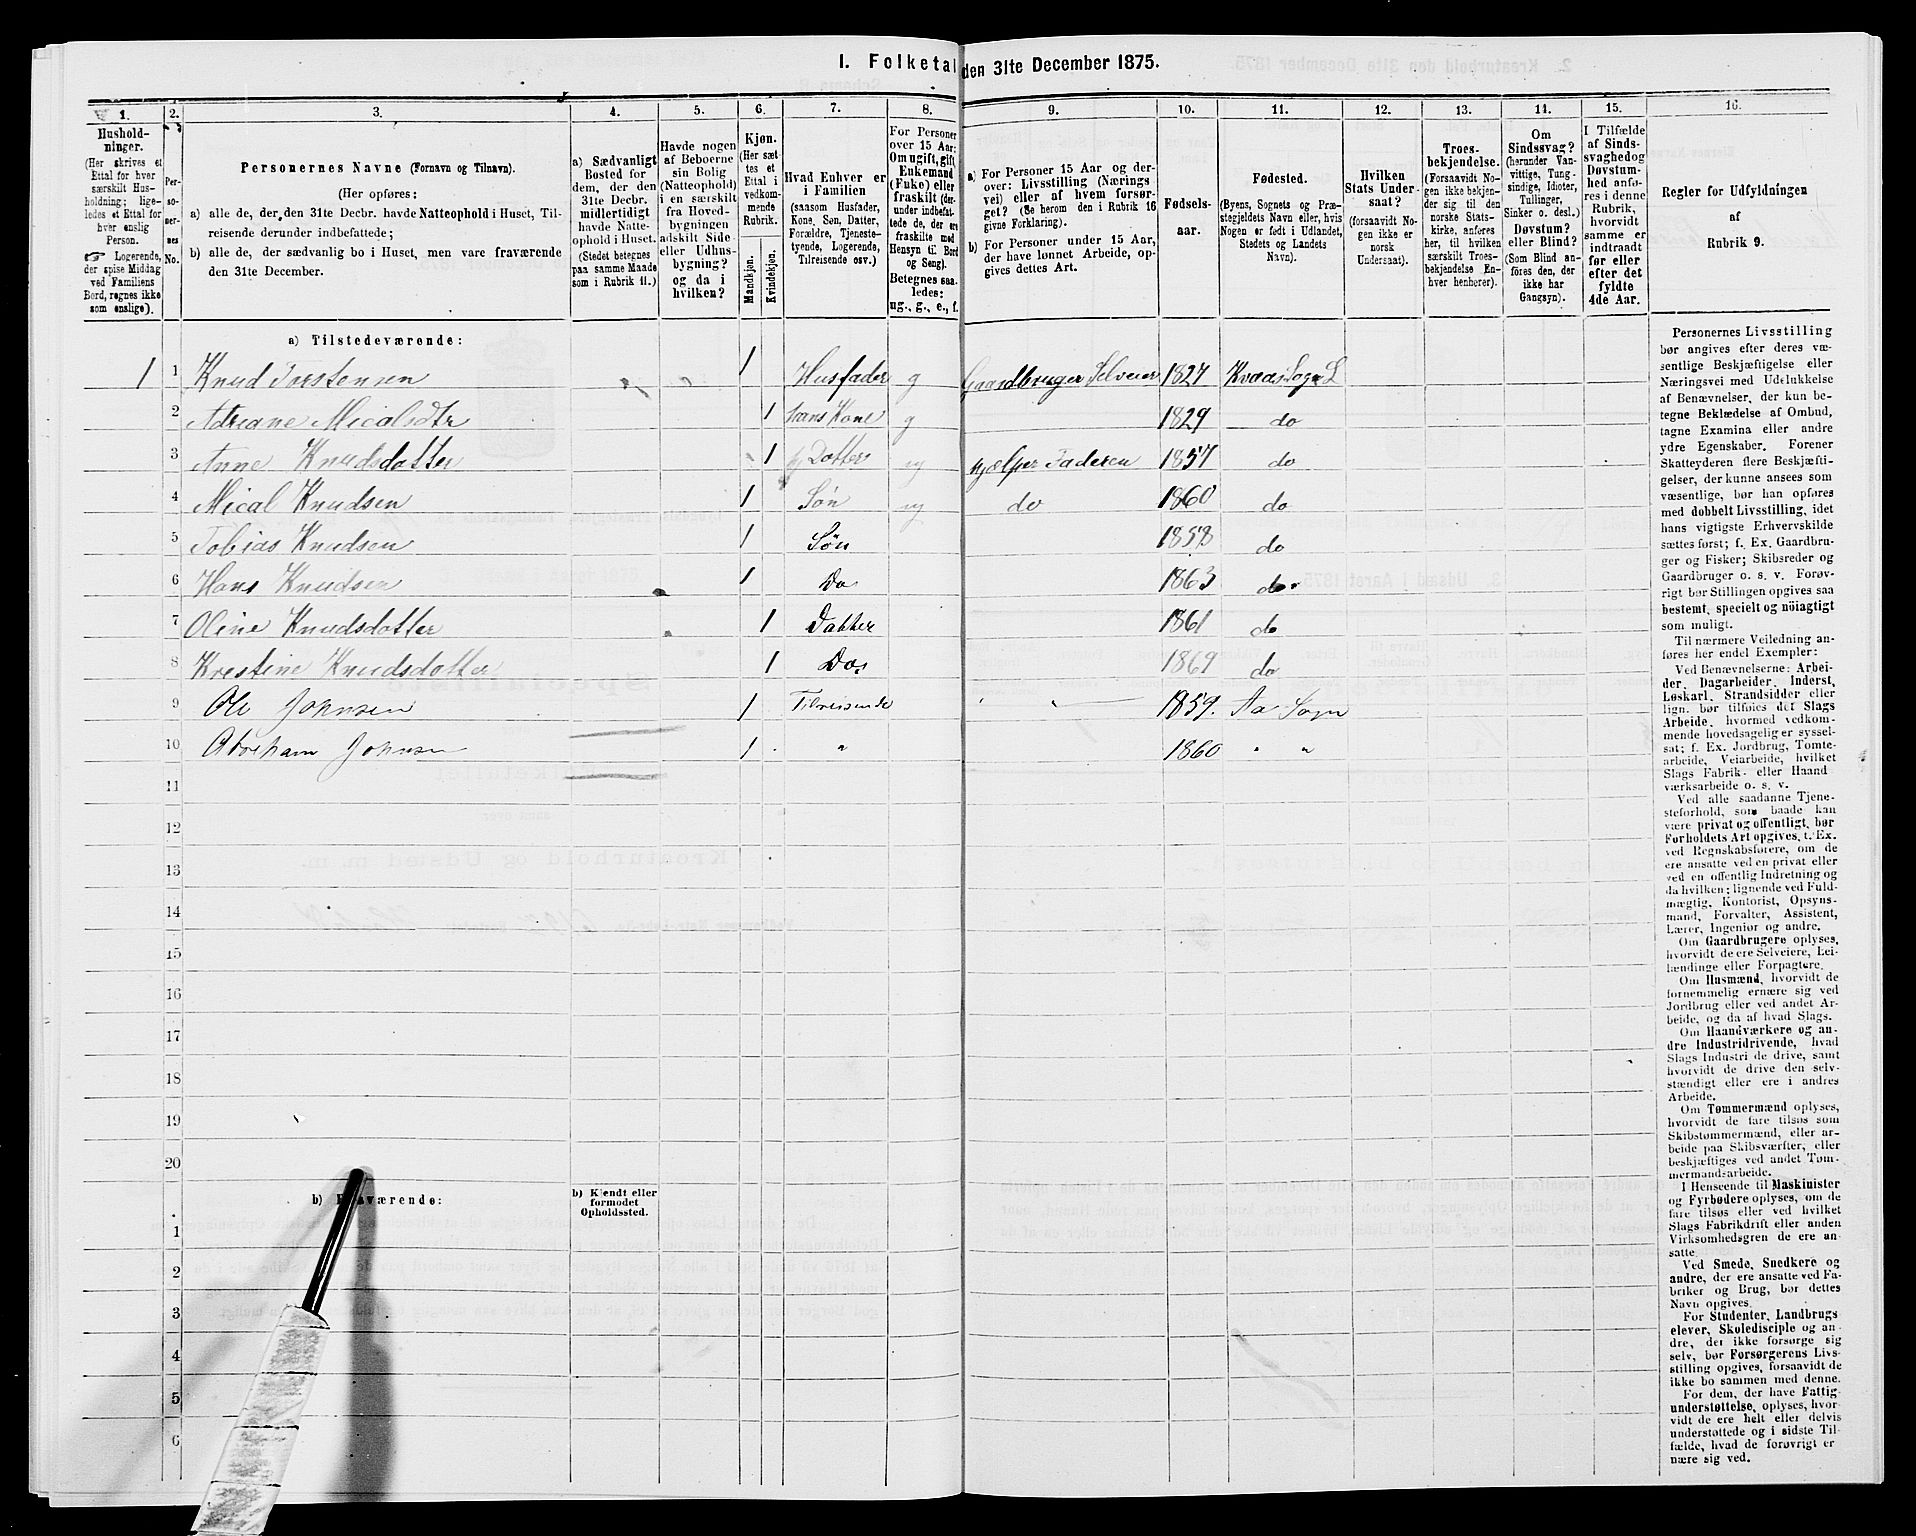 I. Folketal den 31te December 1875.
1. 2. 3. 4. 5. 6. 7. 8. 9. 10. 11. 12. 13. 14. 15. 16.
Hushold-
ninger.
(Her skrives et
Ettal for hver
særskilt Hus-
holdning; lige-
ledes et Ettal for
hver enslig
Person.
☞ Logerende,
der spise Middag
ved Familiens
Bord, regnes ikke
som enslige).
Per-
so-
ner-
nes
No.
Personernes Navne (Fornavn og Tilnavn).
(Her opføres:
a) alle de, der den 31te Decbr. havde Natteophold i Huset, Til-
reisende derunder indbefattede;
b) alle de, der sædvanlig bo i Huset, men vare fraværende
den 31te December.
a) Sædvanligt
Bosted for
dem, der den
31te Decbr.
midlertidigt
havde Natte-
ophold i Huset.
(Stedet betegnes
paa samme Maade
som i Rubrik 11.)
Havde nogen
af Beboerne
sin Bolig
(Natteophold)
i en særskilt
fra Hoved-
bygningen
adskilt Side-
eller Udhus-
bygning?
og da i
hvilken?
Kjøn.
(Her sæt-
tes et
Ettal i
vedkom-
mende
Rubrik.
Mandkjøn.
Kvindekjøn.
Hvad Enhver er
i Familien
(saasom Husfader,
Kone, Søn, Datter,
Forældre, Tjeneste-
tyende, Logerende,
Tilreisende osv.)
For Personer
over 15 Aar:
Om ugift, gift,
Enkemand
(Enke) eller
fraskilt (der-
under indbefat-
tede de, der ere
fraskilte med
Hensyn til Bord
og Seng).
Betegnes saa-
ledes:
ug., g., e., f.
a) For Personer 15 Aar og der-
over: Livsstilling (Nærings-
vei) eller af hvem forsør-
get? (Se herom den i Rubrik 16
givne Forklaring).
b) For Personer under 15 Aar,
der have lønnet Arbeide, op-
gives dettes Art.
Fødsels-
aar.
Fødested.
(Byens, Sognets og Præ-
stegjeldets Navn eller, hvis
Nogen er født i Udlandet,
Stedets og Landets
Navn).
Hvilken
Stats Under-
saat?
(forsaavidt No-
gen ikke er
norsk
Undersaat).
Troes-
bekjendelse.
(Forsaavidt No-
gen ikke bekjen-
der sig til den
norske Stats-
kirke, anføres
her, til hvilken
særskilt Troes-
bekjendelse En-
hver henhører).
Om
Sindssvag?
(herunder Van-
vittige, Tung-
sindige, Idioter,
Tullinger,
Sinker o. desl.)
Døvstum?
eller Blind?
(Som Blind an-
føres den, der
ikke har
Gangsyn).
I Tilfælde
af Sinds-
svaghed og
Døvstum-
hed anfø-
res i denne
Rubrik,
hvorvidt
samme er
indtraadt
før eller
efter det
fyldte
4de Aar.
Regler for Udfyldningen
af
Rubrik 9.
a) Tilstedeværende:
1 1 Knud Torstensen 1 Husfader g Gaardbruger Selveier 1827 Kvaas Sogn L
2 Adriane Micalsdtr 1 hans Kone g 1829 do
3 Anne Knudsdatter 1 Datter ug hjælper Faderen 1857 do
4 Mical Knudsen 1 Søn ug do 1860 do
5 Tobias Knudsen 1 Søn 1858 do
6 Hans Knudsen 1 Do 1863 do
7 Oline Knudsdatter 1 Datter 1861 do
8 Krestine Knudsdatter 1 Do 1869 do
9 Ole Johnsen 1 Tilreisende " " 1859. Aa Sogn
10 Abraham Johnsen 1 " 1860 " "
11
12
13
14
15
16
17
18
19
20
b) Fraværende:
b) Kjendt eller
formodet
Opholdssted.
1
2
3
4
5
6
Personernes Livsstilling
bør angives efter deres væ-
sentlige Beskjæftigelse eller
Næringsvei med Udelukkelse
af Benævnelser, der kun be-
tegne Beklædelse af Ombud,
tagne Examina eller andre
ydre Egenskaber. Forener
Skatteyderen flere Beskjæfti-
gelser, der kunne ansees som
væsentlige, bør han opføres
med dobbelt Livsstilling, idet
hans vigtigste Erhvervskilde
sættes først; f. Ex. Gaardbru-
ger og Fisker; Skibsreder og
Gaardbruger o. s. v. Forøv-
rigt bør Stillingen opgives saa
bestemt, specielt og nöiagtigt
som muligt.
Til nærmere Veiledning an-
føres her endel Exempler:
Ved Benævnelserne: Arbei-
der, Dagarbeider, Inderst,
Løskarl, Strandsidder eller
lign. bør tilføies det Slags
Arbeide, hvormed vedkom-
mende hovedsagelig er syssel-
sat; f. Ex. Jordbrug, Tomte-
arbeide, Veiarbeide, hvilket
Slags Fabrik- eller Haand
værksarbeide o. s. v.
Ved alle saadanne Tjene-
steforhold, som baade kan
være privat og offentligt, bør
Forholdets Art opgives, t. Ex.
ved Regnskabsførere, om de
ere ansatte ved en privat eller
ved en offentlig Indretning og
da hvilken; lignende ved Fuld-
mægtig, Kontorist, Opsyns-
mand, Forvalter, Assistent,
Lærer, Ingeniør og andre.
Om Gaardbrugere oplyses,
hvorvidt de ere Selveiere, Lei-
lændinge eller Forpagtere.
Om Husmænd, hvorvidt de
fornemmelig ernære sig ved
Jordbrug eller ved andet Ar-
beide, og da af hvad Slags.
Om Haandværkere og an-
dre Industridrivende, hvad
Slags Industri de drive, samt
hvorvidt de drive den selv-
stændigt eller ere i andres
Arbeide.
Om Tømmermænd oplyses,
hvorvidt de fare tilsøs som
Skibstømmermænd, eller ar-
beide paa Skibsværfter, eller
beskjæftiges ved andet Tøm-
mermandsarbeide.
I Henseende til Maskinister
og Fyrbødere oplyses, om de
fare tilsøs eller ved hvilket
Slags Fabrikdrift eller anden
Virksomhedsgren de ere an-
satte.
Ved Smede, Snedkere og
andre, der ere ansatte ved Fa-
briker og Brug, bør dettes
Navn opgives.
For Studenter, Landbrugs-
elever, Skoledisciple og an-
dre, der ikke forsørge sig
selv, bør Forsørgerens Livs-
stilling opgives, forsaavidt de
ikke bo sammen med denne.
For dem, der have Fattig-
understøttelse, oplyses, hvor-
vidt de ere helt eller delvis
understøttede og i sidste Til-
fælde, hvad de forøvrigt er-
nære sig ved.